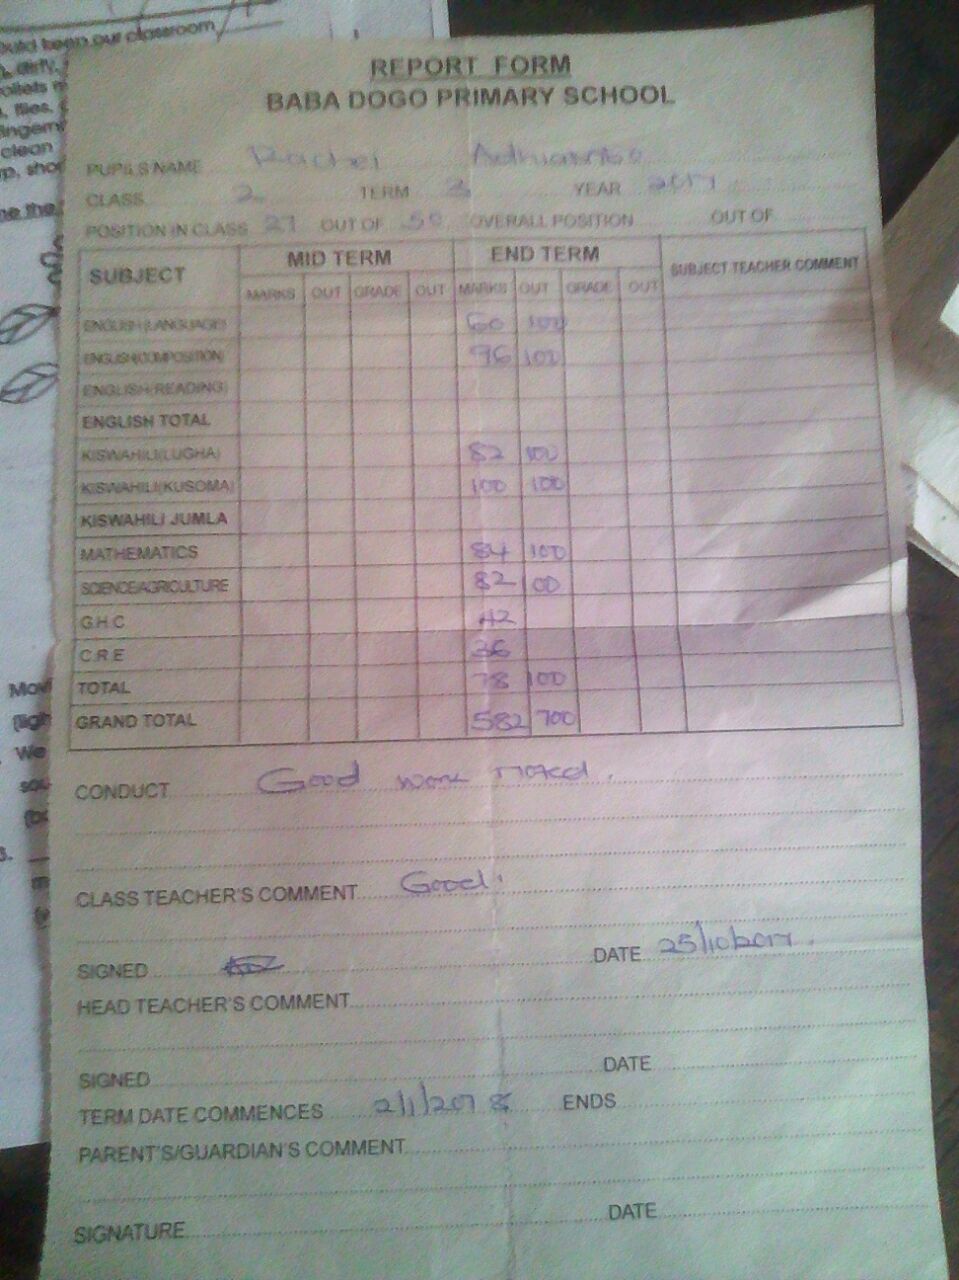 REPORT FORM
BABA DOGO PRIMARY SCHOOL
PUPIL'S NAME Rachel
CLASS 2 TERM 3 YEAR 2017
POSITION IN CLASS 27 OUT OF 50 OVERALL POSITION OUT OF
SUBJECT MID TERM END TERM SUBJECT TEACHER COMMENT
MARKS OUT GRADE OUT MARKS OUT GRADE OUT
ENGLISH (LANGUAGE) 60 100
ENGLISH(COMPOSITION) 96 100
ENGLISH(READING)
ENGLISH TOTAL
KISWAHILI(LUGHA) 82 100
KISWAHILI(KUSOMA) 100 100
KISWAHILI JUMLA
MATHEMATICS 84 100
SCIENCE/AGRICULTURE 82 100
G.H.C 42
C.R.E 36
TOTAL 78 100
GRAND TOTAL 582 700
CONDUCT Good work noted.
CLASS TEACHER'S COMMENT Good.
SIGNED DATE 25/10/2017.
HEAD TEACHER'S COMMENT
SIGNED DATE
TERM DATE COMMENCES 2/1/2018 ENDS
PARENT'S/GUARDIAN'S COMMENT
SIGNATURE DATE
our classroom
clean